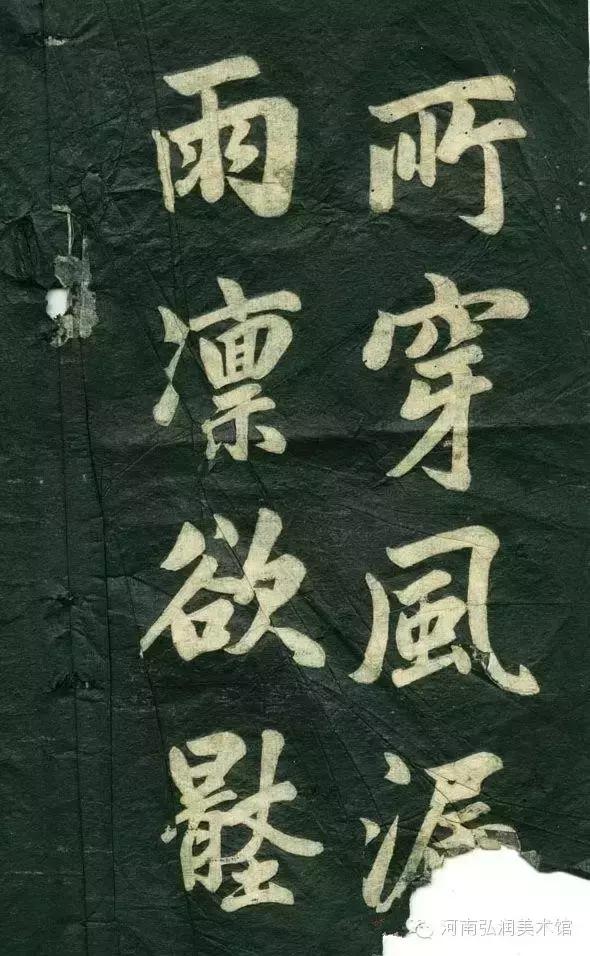 所穿風
雨凛欲
河南弘润美术馆